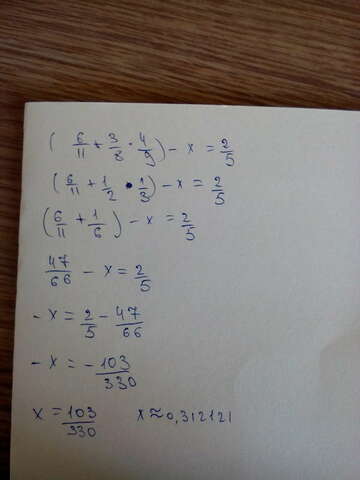 ( 6/11 + 3/8 · 4/9 ) - x = 2/5
( 6/11 + 1/2 · 1/3 ) - x = 2/5
( 6/11 + 1/6 ) - x = 2/5
47/66 - x = 2/5
- x = 2/5 - 47/66
- x = - 103/330
x = 103/330 x ≈ 0,312121